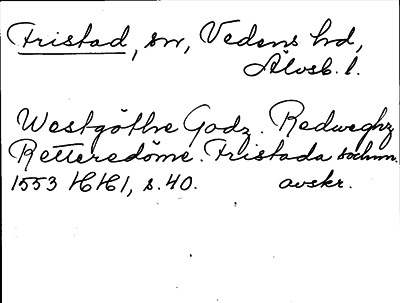 Fristad, sn, Vedens hd,
Älvsb. l.
Westgöthe Godz. Redweghz
Rettersdöme. Fristada sochnn.
1553 HH1, s. 40. avskr.